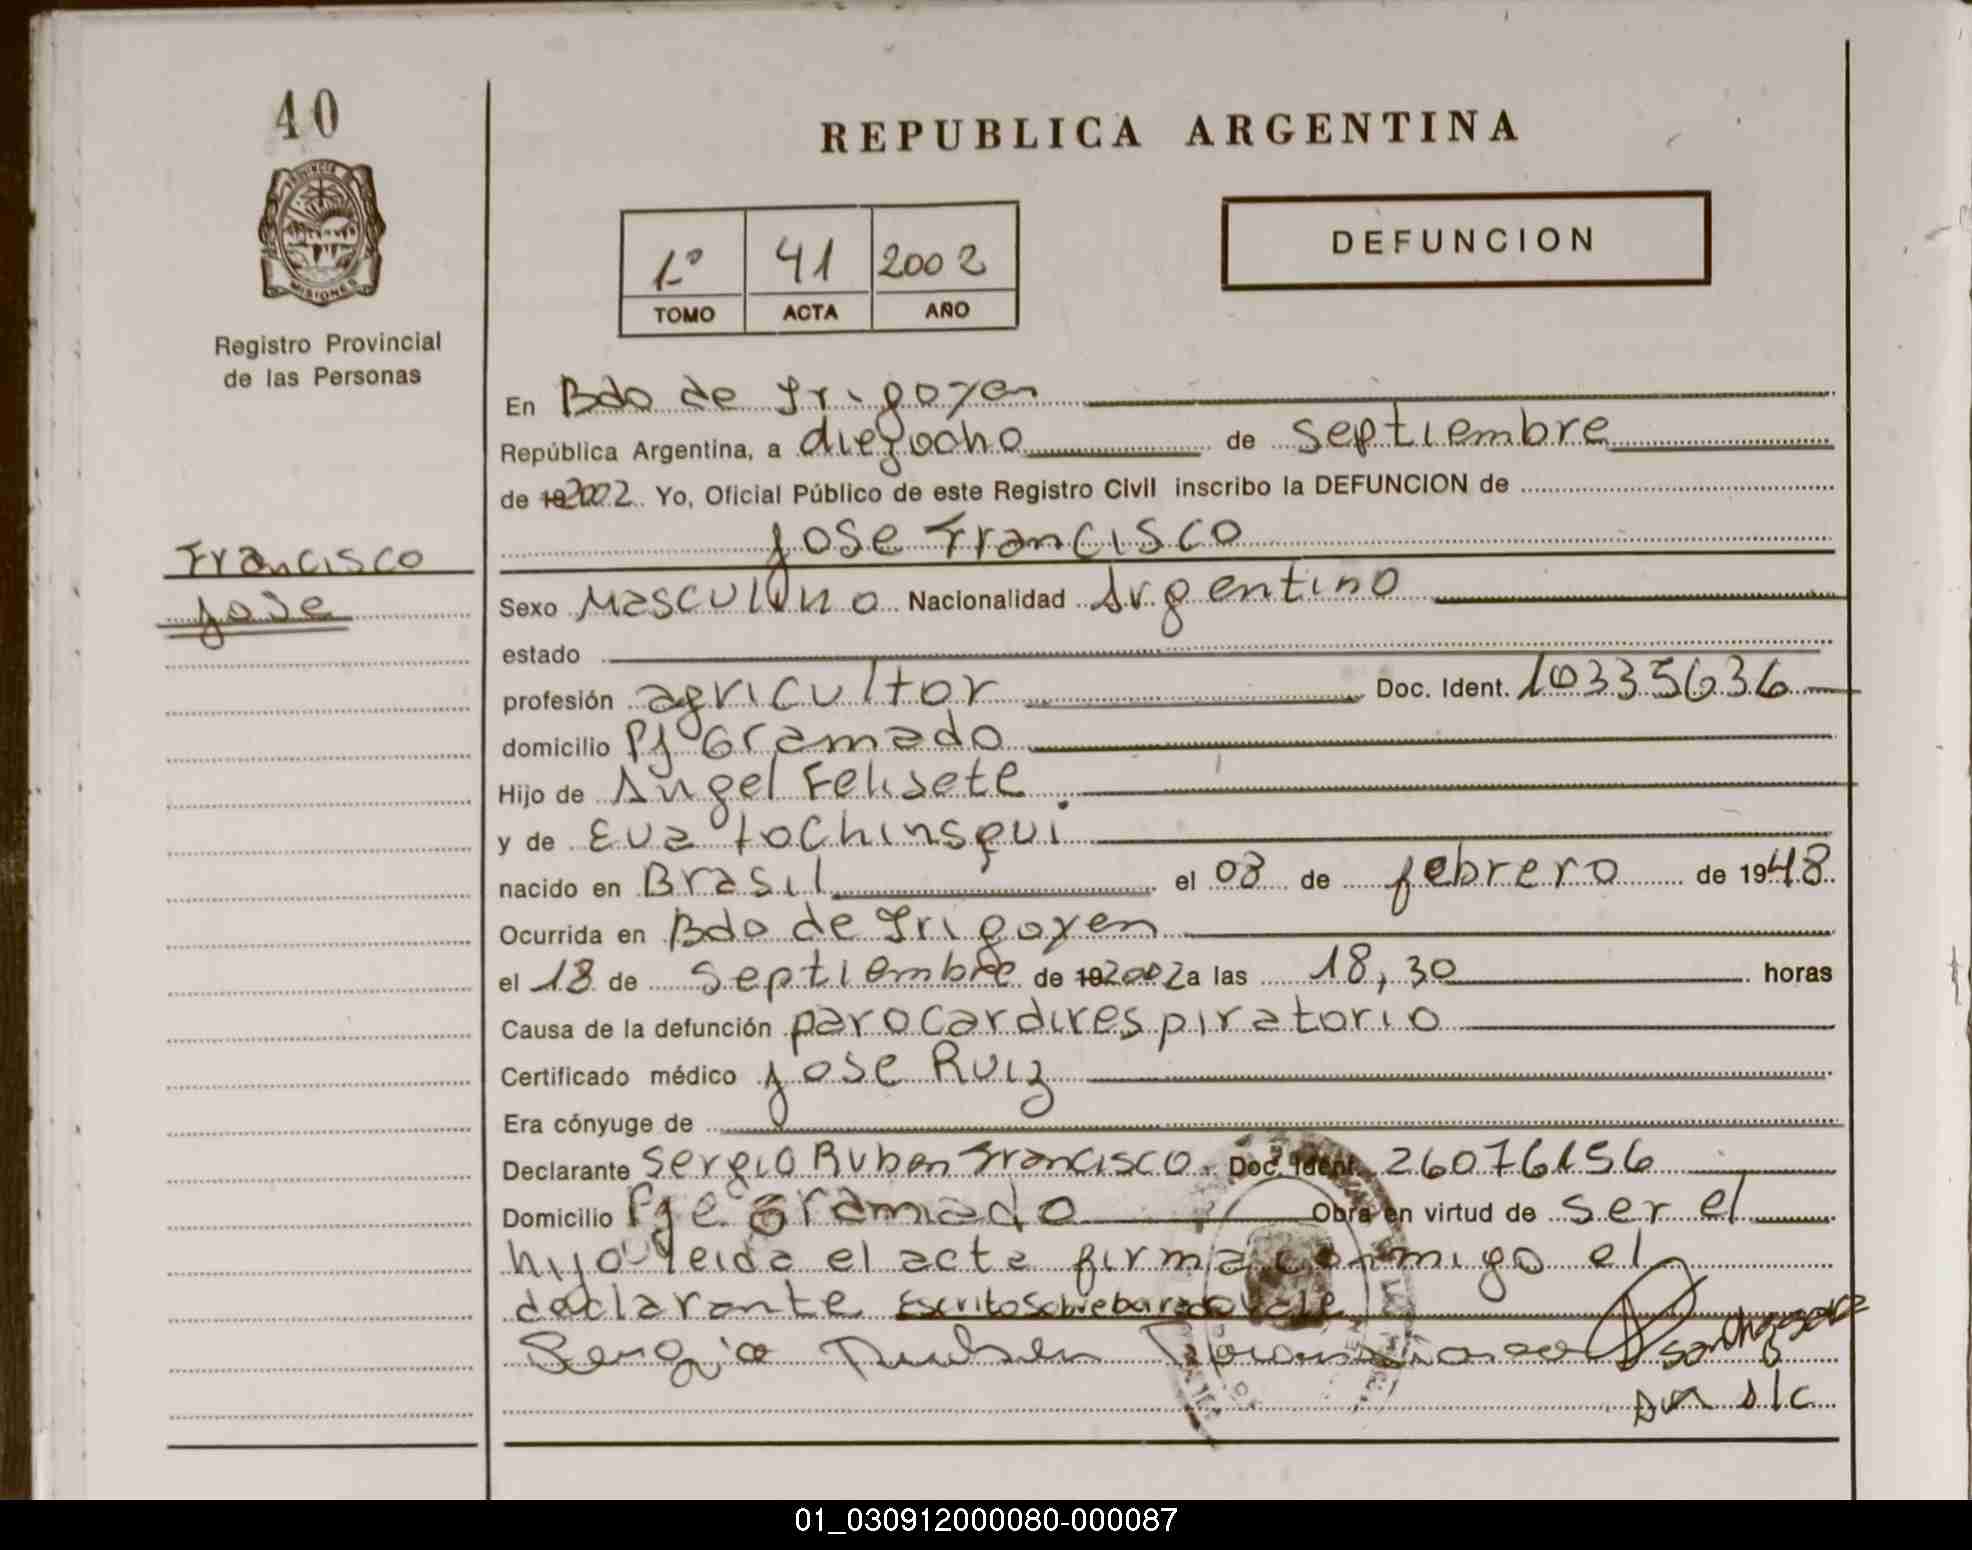 40
PROVINCIA
MISIONES
Registro Provincial
de las Personas
REPUBLICA ARGENTINA
1º 41 2002
TOMO ACTA AÑO
DEFUNCION
En Bdo de Irigoyen
República Argentina, a diezocho de septiembre
de 192002 Yo, Oficial Público de este Registro Civil inscribo la DEFUNCION de
Jose Francisco
Francisco
Jose
Sexo Masculino Nacionalidad Argentino
estado
profesión agricultor Doc. Ident. 10335636
domicilio Pje Gramado
Hijo de Angel Felisete
y de Eva tochinsqui
nacido en Brasil el 08 de febrero de 1948
Ocurrida en Bdo de Irigoyen
el 18 de septiembre de 192002 a las 18,30 horas
Causa de la defunción parocardirespiratorio
Certificado médico Jose Ruiz
Era cónyuge de
Declarante Sergio Ruben Francisco Doc. Ident. 26076156
Domicilio Pje Gramado Obra en virtud de ser el
hijo leida el acta firma conmigo el
declarante Escrito sobre borrado vale
Sergio Ruben Francisco
01_030912000080-000087